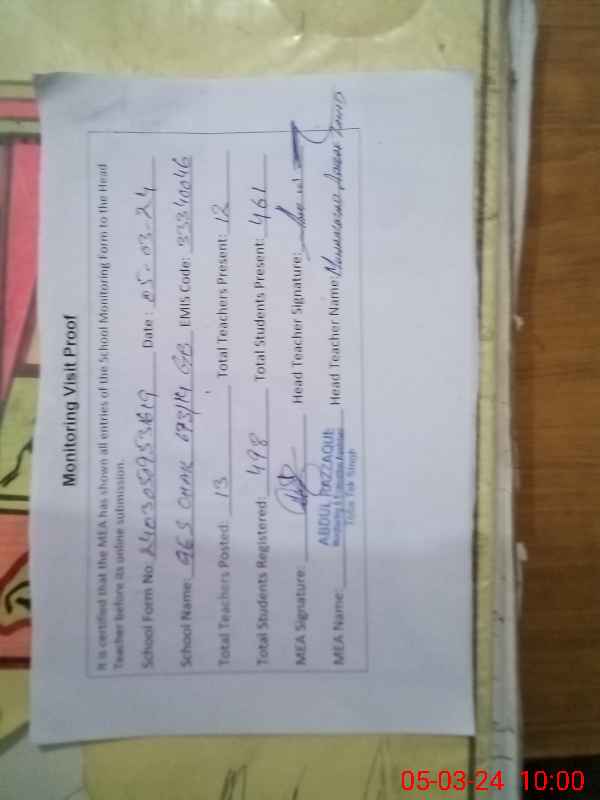 Monitoring Visit Proof
It is certified that the MEA has shown all entries of the School Monitoring Form to the Head
Teacher before its online submission.
School Form No: Date: 05-03-24
School Name: GES CHAK 673/14 GB EMIS Code: 33340046
Total Teachers Posted: 13 Total Teachers Present: 12
Total Students Registered: 498 Total Students Present: 461
MEA Signature: Head Teacher Signature:
MEA Name: ABDUL RAZZAQUE Head Teacher Name: Muhammad
Monitoring & Evaluation Assistant
Toba Tek Singh
05-03-24 10:00